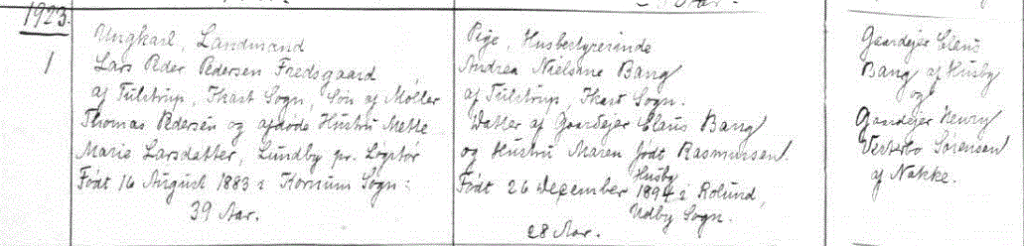 1923.
1
Ungkarl, Landmand
Lars Peder Pedersen Fredsgaard
af Tulstrup, Ikast Sogn, Søn af Møller
Thomas Pedersen og afdøde Hustru Mette
Marie Larsdatter, Lundby pr. Løgstør
Født 16 August 1883 i Kornum Sogn:
39 Aar.
Pige, Husbestyrerinde
Andrea Nielsine Bang
af Tulstrup, Ikast Sogn.
Datter af Gaardejer Claus Bang
og Hustru Maren født Rasmussen.
Husby
Født 26 December 1894 i Rolund,
Udby Sogn.
28 Aar.
Gaardejer Claus
Bang af Husby
og
Gaardejer Henry
Sørensen
af Nakke.